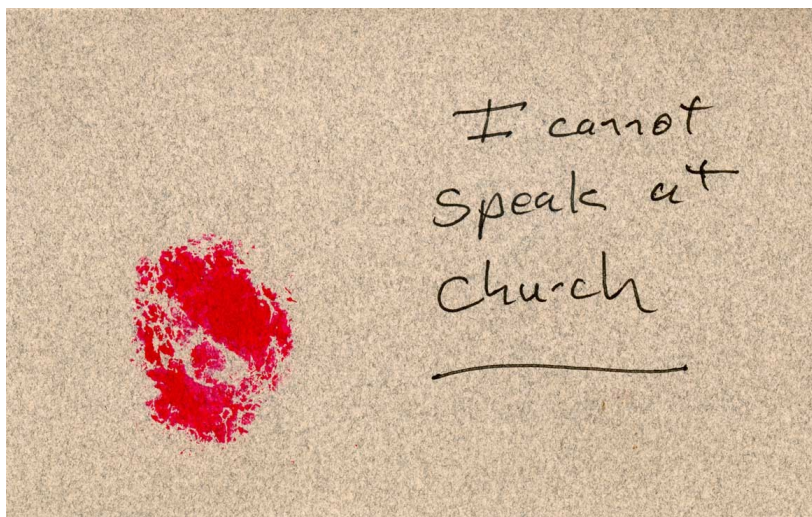 I cannot
speak at
church